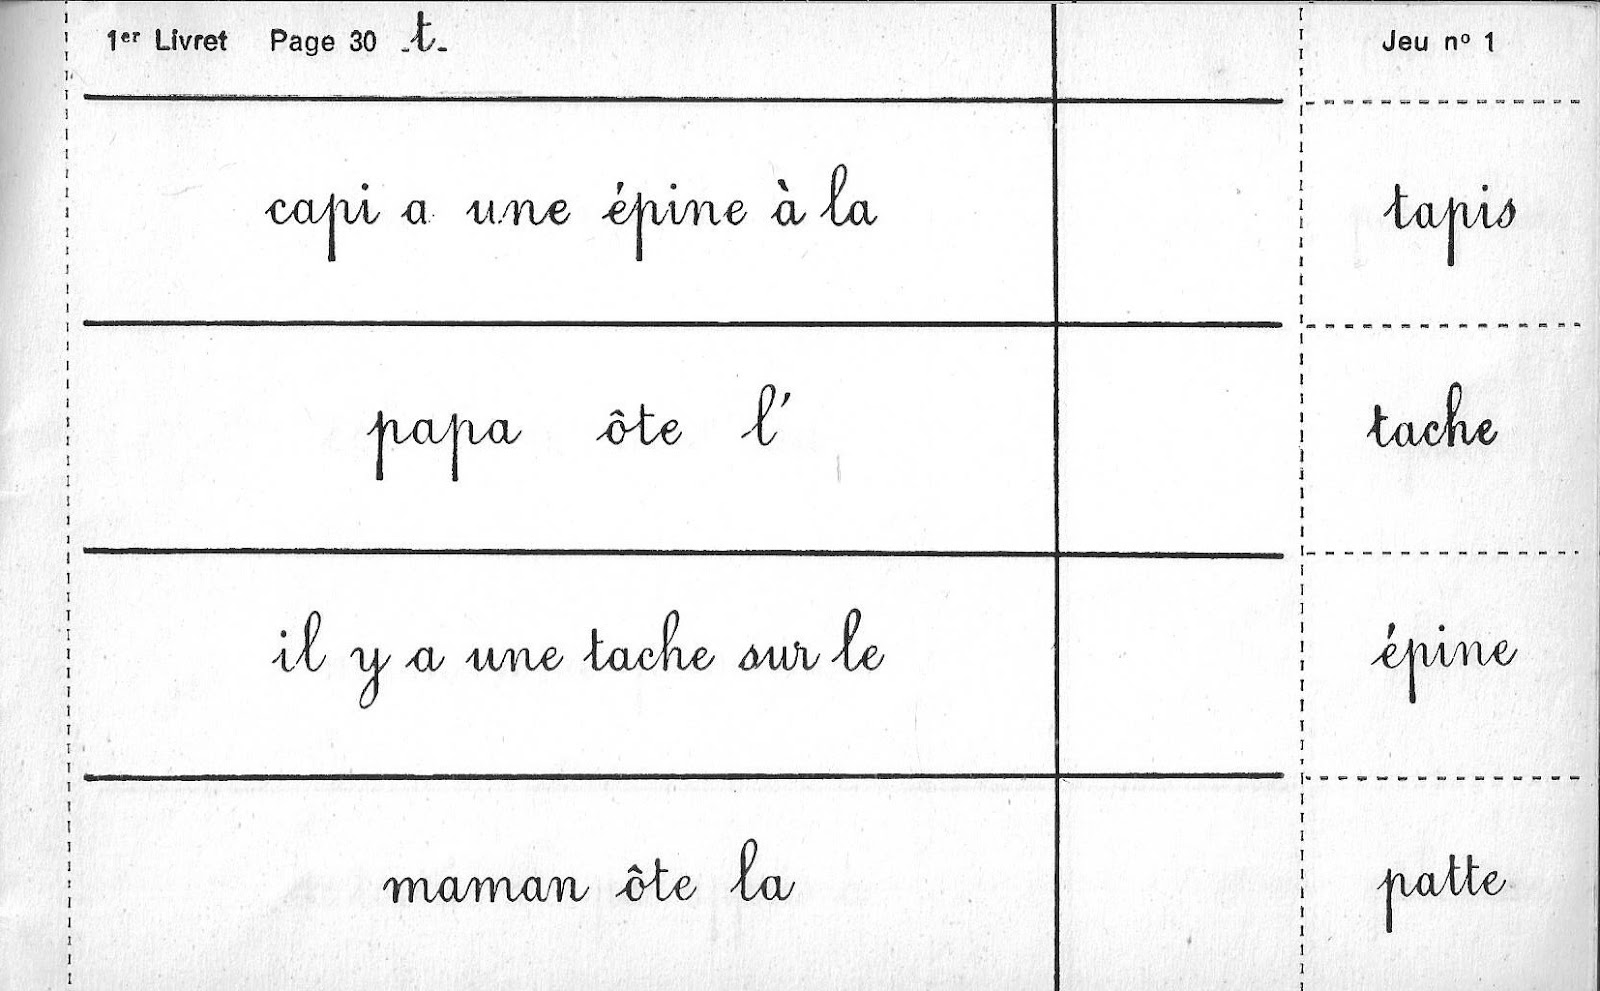 1er Livret Page 30 -t- Jeu nº 1
capi a une épine à la tapis
papa ôte l' tache
il y a une tache sur le épine
maman ôte la patte